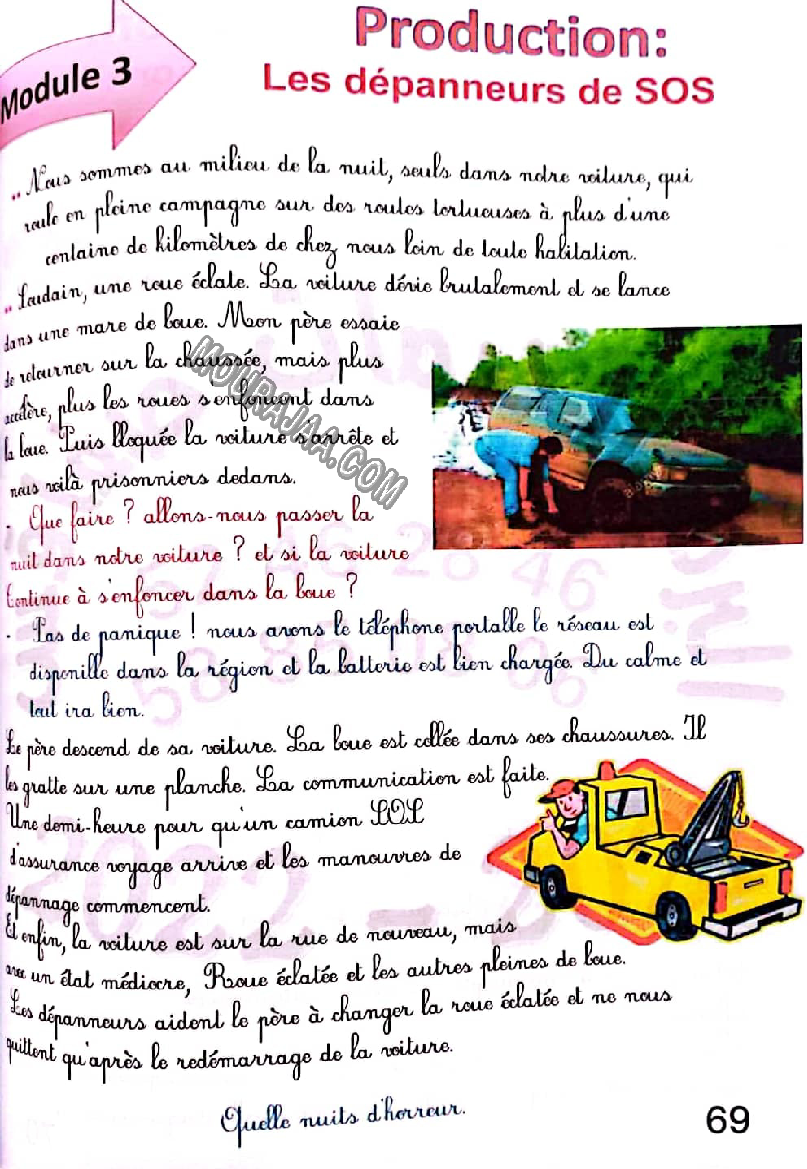 Production:
Module 3
Les dépanneurs de SOS
.. Nous sommes au milieu de la nuit, seuls dans notre voiture, qui
roule en pleine campagne sur des routes tortueuses à plus d'une
centaine de kilomètres de chez nous loin de toute habitation.
.. Soudain, une roue éclate. La voiture dévie brutalement et se lance
dans une mare de boue. Mon père essaie
de retourner sur la chaussée, mais plus
accélère, plus les roues s'enfoncent dans
la boue. Puis bloquée la voiture s'arrête et
nous voilà prisonniers dedans.
- Que faire ? allons-nous passer la
nuit dans notre voiture ? et si la voiture
Continue à s'enfoncer dans la boue ?
- Pas de panique ! nous avons le téléphone portable le réseau est
disponible dans la région et la batterie est bien chargée. Du calme et
tout ira bien.
Le père descend de sa voiture. La boue est collée dans ses chaussures. Il
les gratte sur une planche. La communication est faite.
Une demi-heure pour qu'un camion SOS
d'assurance voyage arrive et les manouvres de
dépannage commencent.
Et enfin, la voiture est sur la rue de nouveau, mais
avec un état médiocre, Roue éclatée et les autres pleines de boue.
Les dépanneurs aident le père à changer la roue éclatée et ne nous
quittent qu'après le redémarrage de la voiture.
Quelle nuits d'horreur.
69
MOURAJAA.COM